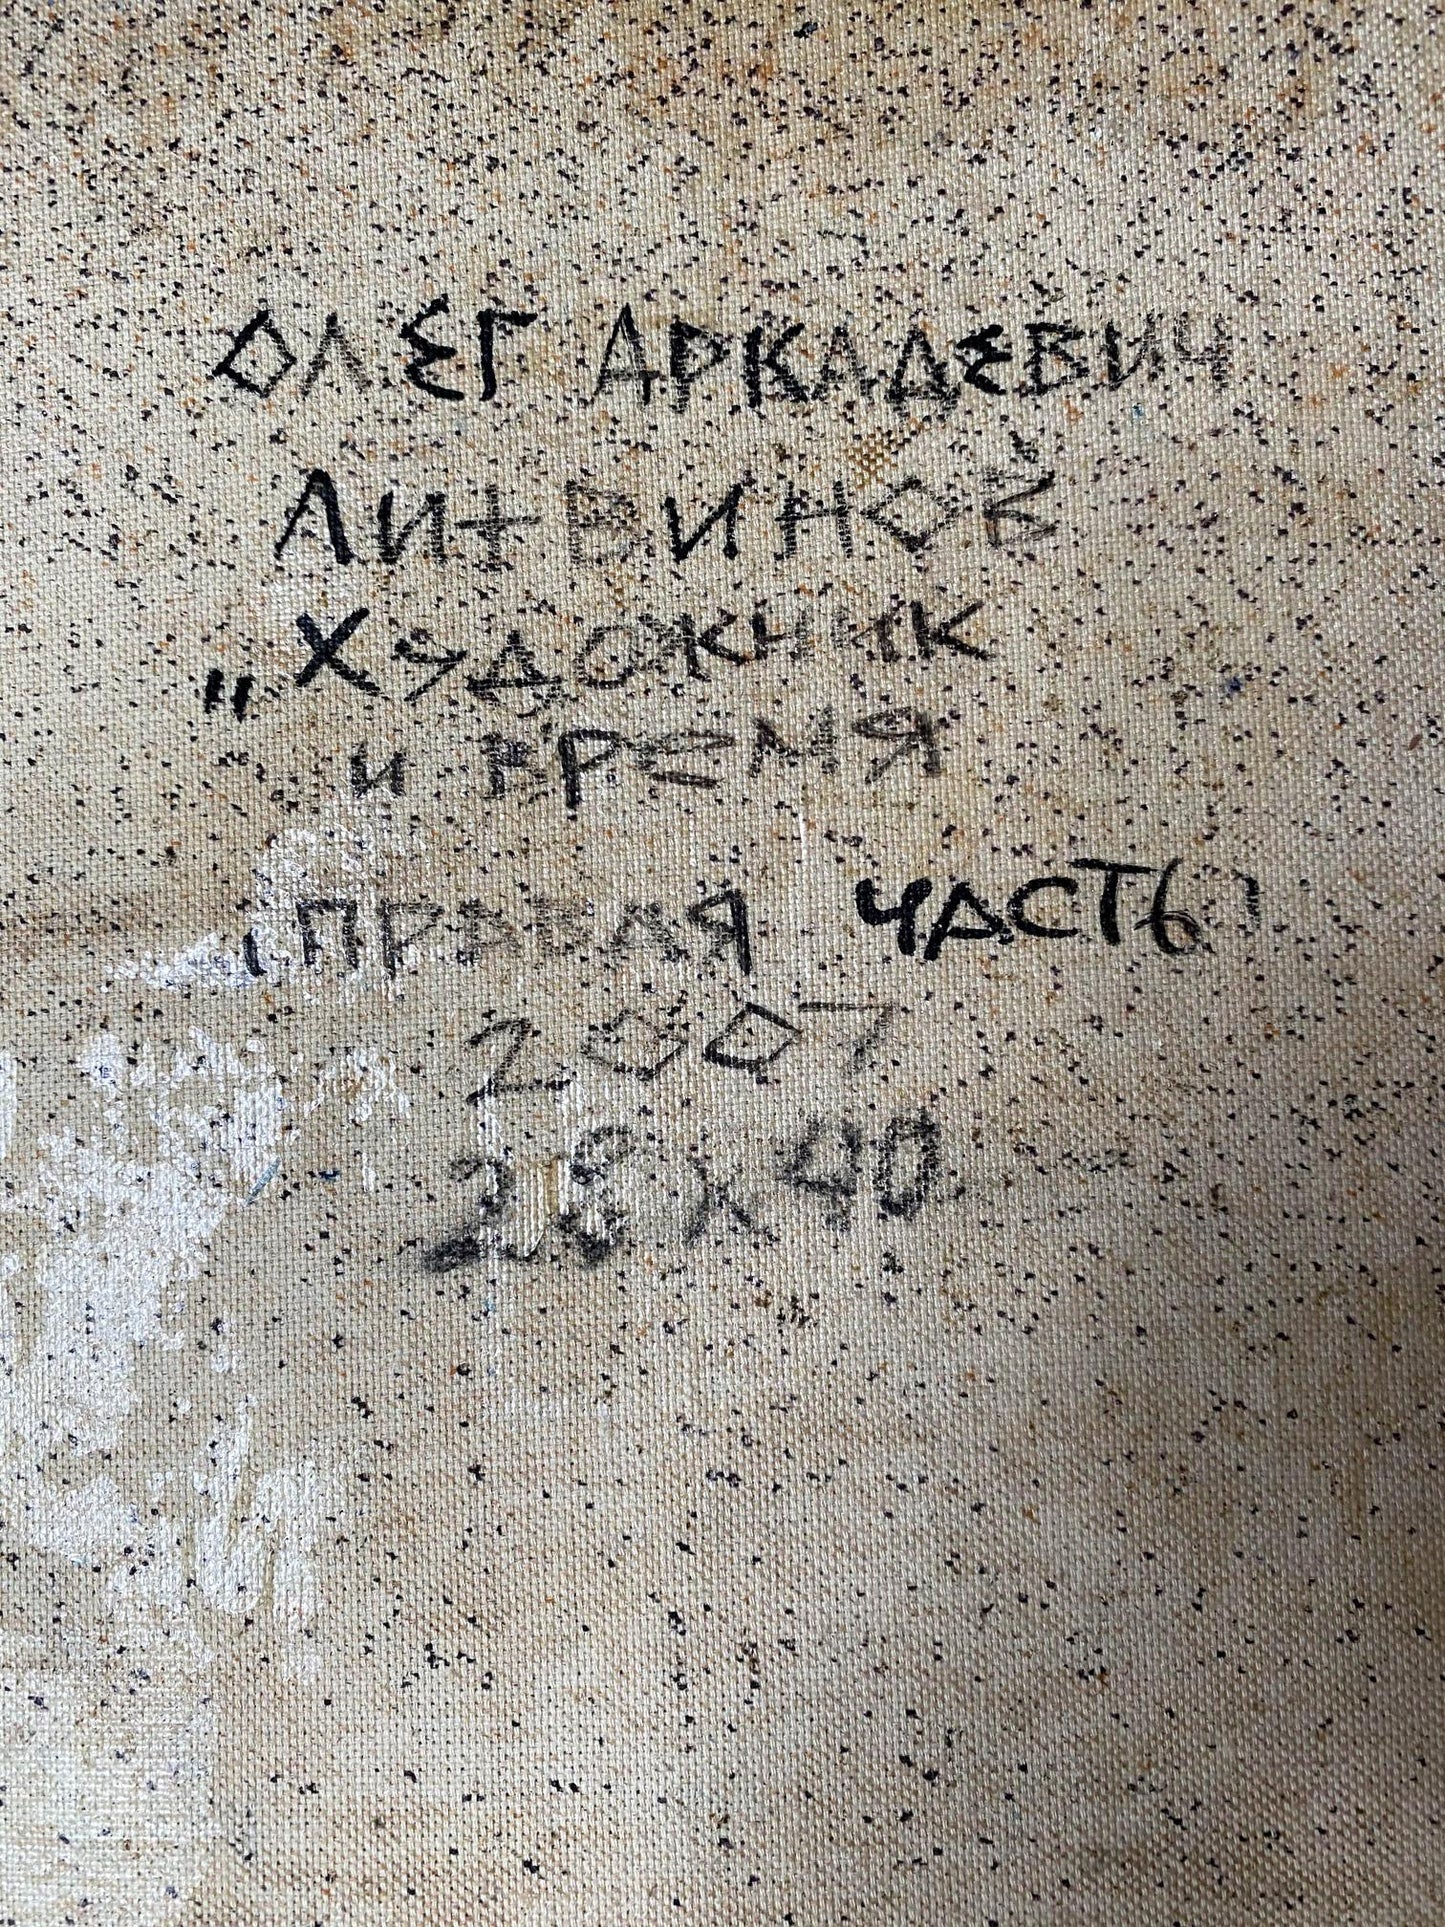 ОЛЕГ АРКАДЕВИЧ
ЛИТВИНОВ
„ХУДОЖНИК
и ВРЕМЯ
(ПРАВАЯ ЧАСТЬ)
2007
28 х 40